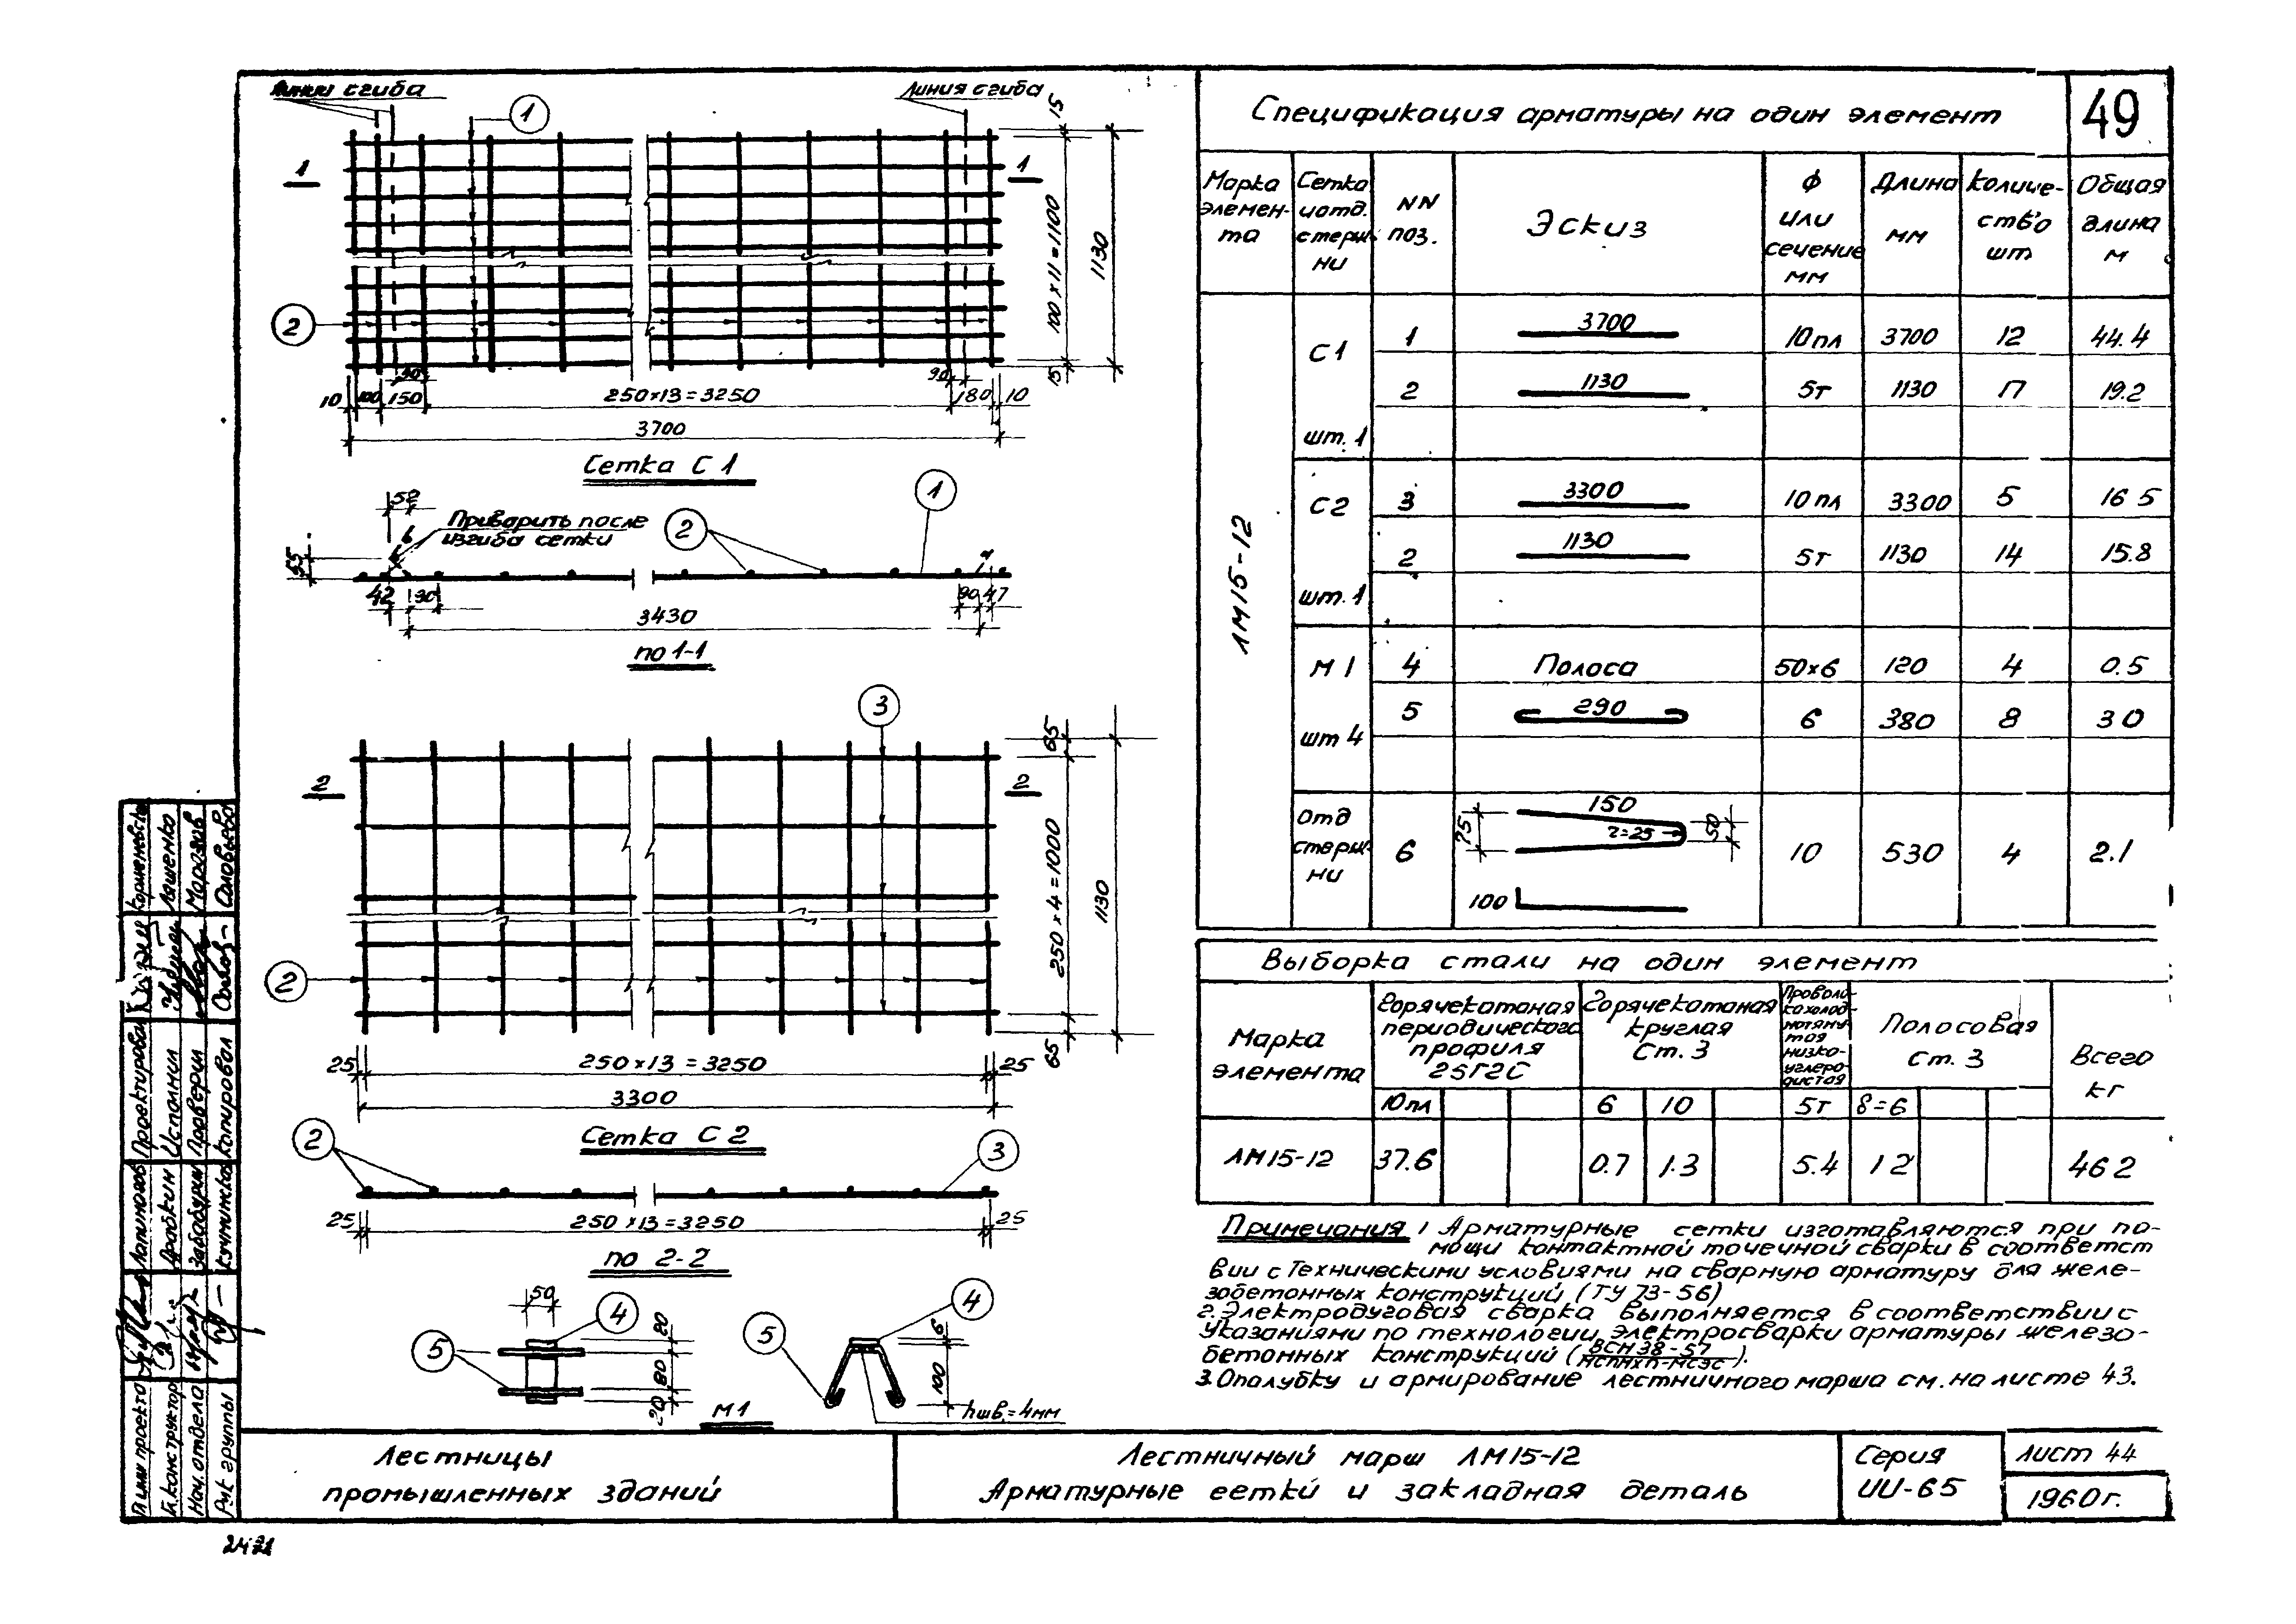 линия сгиба
линия сгиба
1
1
1
2
15
100×11=1100
15
1130
90
90
10
100
150
250×13=3250
180
10
3700
Сетка С1
52
Приварить после
изгиба сетки
6
1
2
55
42
90
90
47
3430
по 1-1
3
2
2
2
65
250×4=1000
65
1130
25
250×13=3250
25
3300
Сетка С2
2
3
25
250×13=3250
25
по 2-2
50
4
5
20
80
20
М1
4
5
6
100
hшв.=4мм
Спецификация арматуры на один элемент
49
Марка элемен-та
Сетка и отд. стерж-ни
NN поз.
Эскиз
Ф или сечение мм
Длина мм
Количе-ство шт
Общая длина м
ЛМ15-12
С1 шт.1
1 3700 10пл 3700 12 44.4
2 1130 5т 1130 17 19.2
С2 шт.1
3 3300 10пл 3300 5 16 5
2 1130 5т 1130 14 15.8
М1 шт 4
4 Полоса 50×6 120 4 0.5
5 290 6 380 8 3 0
Отд стерж-ни
6 150 75 r=25 50 100 10 530 4 2.1
Выборка стали на один элемент
Марка элемента
Горячекатаная периодического профиля 25Г2С
Горячекатаная круглая Ст. 3
Проволо-ка холод-нотяну-тая низко-углеро-дистая
Полосовая Ст. 3
Всего кг
10пл 6 10 5т δ=6
ЛМ15-12 37.6 0.7 1.3 5.4 1 2 46 2
Примечания 1 Арматурные сетки изготавляются при по-
мощи контактной точечной сварки в соответст
вии с Техническими условиями на сварную арматуру для желе-
зобетонных конструкций (ТУ 73-56)
2. Электродуговая сварка выполняется в соответствии с
Указаниями по технологии электросварки арматуры железо-
бетонных конструкций (ВСН 38-57 / МСПМХП-МСЭС).
3. Опалубку и армирование лестничного марша см. на листе 43.
Лестницы
промышленных зданий
Лестничный марш ЛМ15-12
Арматурные сетки и закладная деталь
Серия
ИИ-65
Лист 44
1960г.
Гл. инж проекта
Гл. конструктор
Нач. отдела
Рук группы
Проектировал
Исполнил
Проверил
Копировал
Ляшенко
Морозов
Соловьева